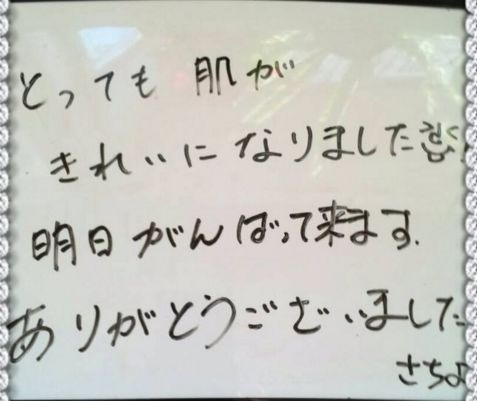 とっても 肌が
きれいになりました
明日がんばって来ます.
ありがとうございました
さちよ